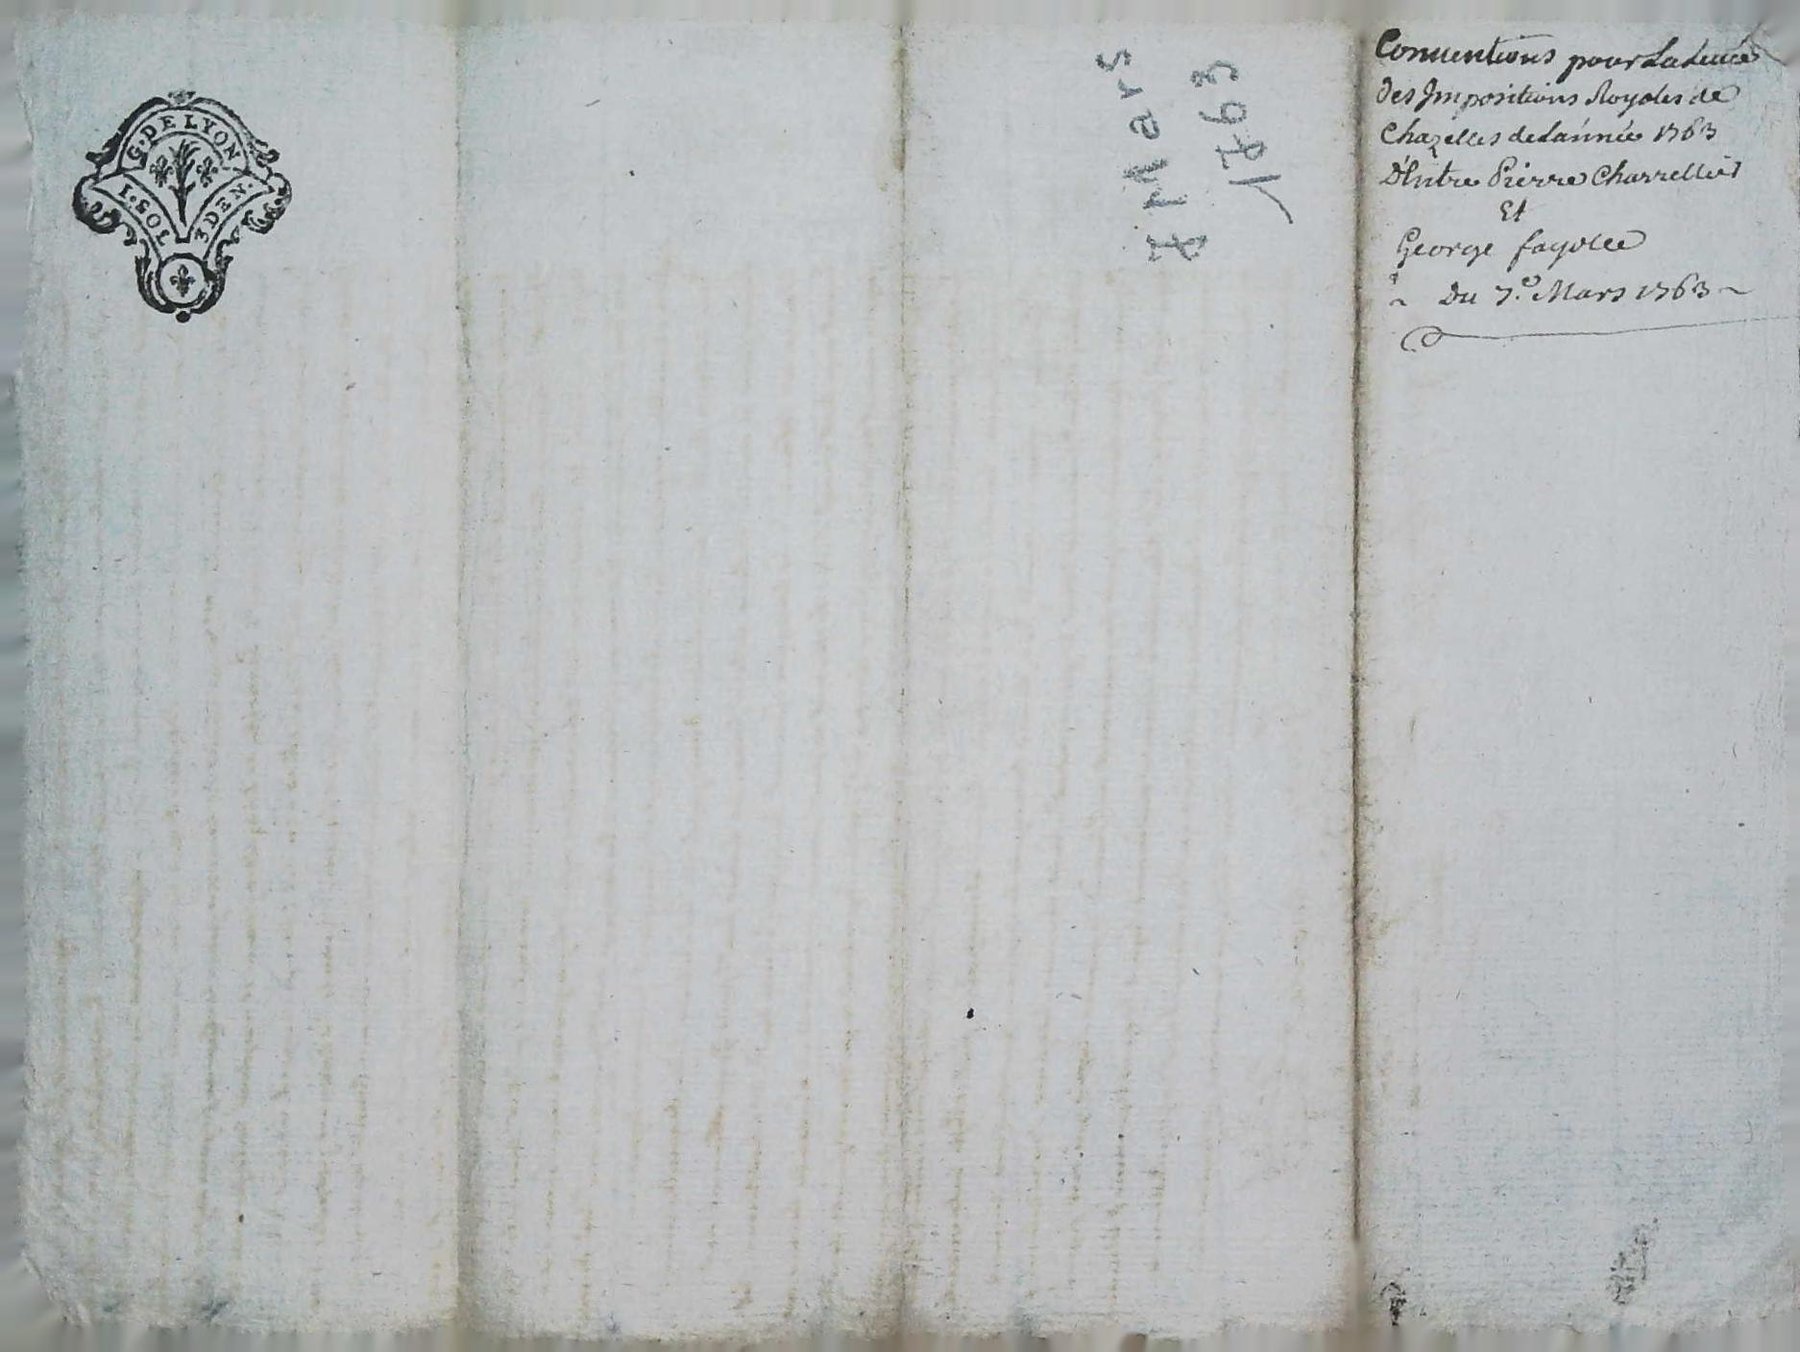 G. DE LYON
I. SOL 3 DEN.
7 Mars
1763
Conuentions pour La Leueé
des Impositions Royales de
Chazelles de Lánneé 1763
D'Entre Pierre Charrellier
Et
George fayolle
~ Du 7.e Mars 1763 ~